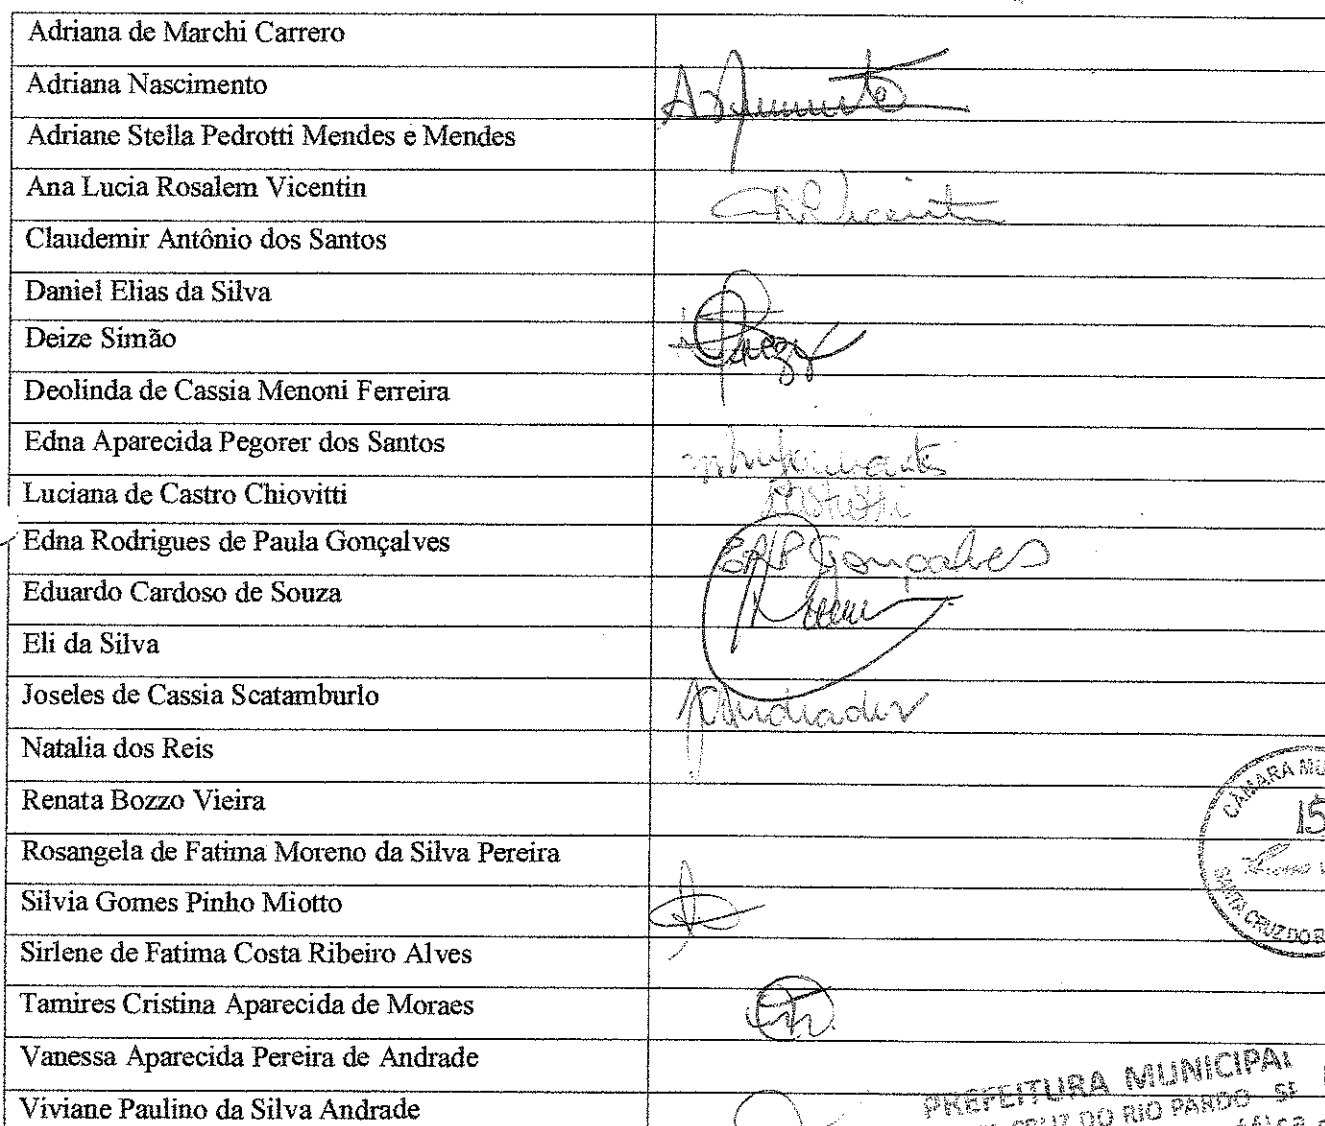 Adriana de Marchi Carrero
Adriana Nascimento
Adriane Stella Pedrotti Mendes e Mendes
Ana Lucia Rosalem Vicentin
Claudemir Antônio dos Santos
Daniel Elias da Silva
Deize Simão
Deolinda de Cassia Menoni Ferreira
Edna Aparecida Pegorer dos Santos
Luciana de Castro Chiovitti
Edna Rodrigues de Paula Gonçalves
ERP Gonçalves
Eduardo Cardoso de Souza
Eli da Silva
Joseles de Cassia Scatamburlo
Natalia dos Reis
CÂMARA MU
Renata Bozzo Vieira
15
Rosangela de Fatima Moreno da Silva Pereira
Silvia Gomes Pinho Miotto
SANTA CRUZ DO R
Sirlene de Fatima Costa Ribeiro Alves
Tamires Cristina Aparecida de Moraes
Vanessa Aparecida Pereira de Andrade
PREFEITURA MUNICIPAL
Viviane Paulino da Silva Andrade
DO RIO PARDO